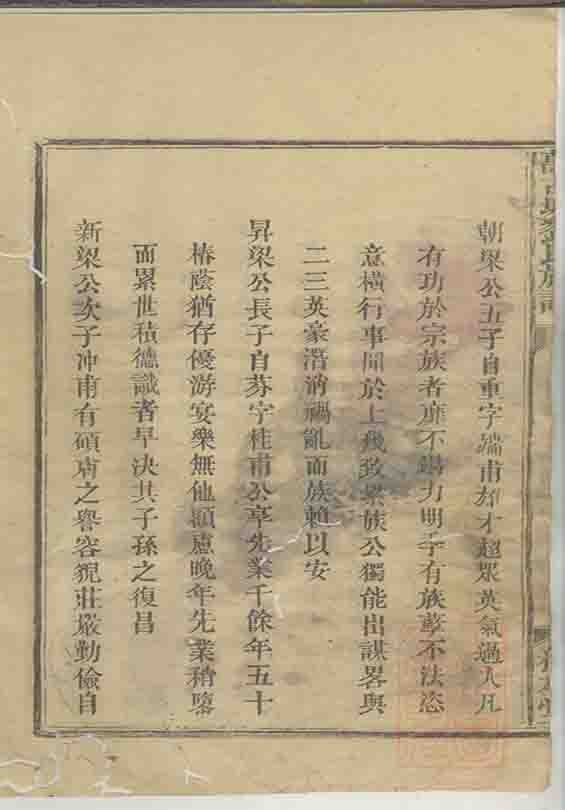 朝梁公五子自重字端甫雄才超眾英氣過人凡
有功於宗族者靡不竭力明季有族孽不法恣
意橫行事聞於上幾致累族公獨能出謀畧與
二三英豪潛消禍亂而族賴以安
昇梁公長子自芬字桂甫公享先業千餘年五十
椿蔭猶存優游宴樂無他顧慮晚年先業稍墜
而累世積德識者早決其子孫之復昌
新梁公次子冲甫有碩甫之譽容貌莊嚴勤儉自